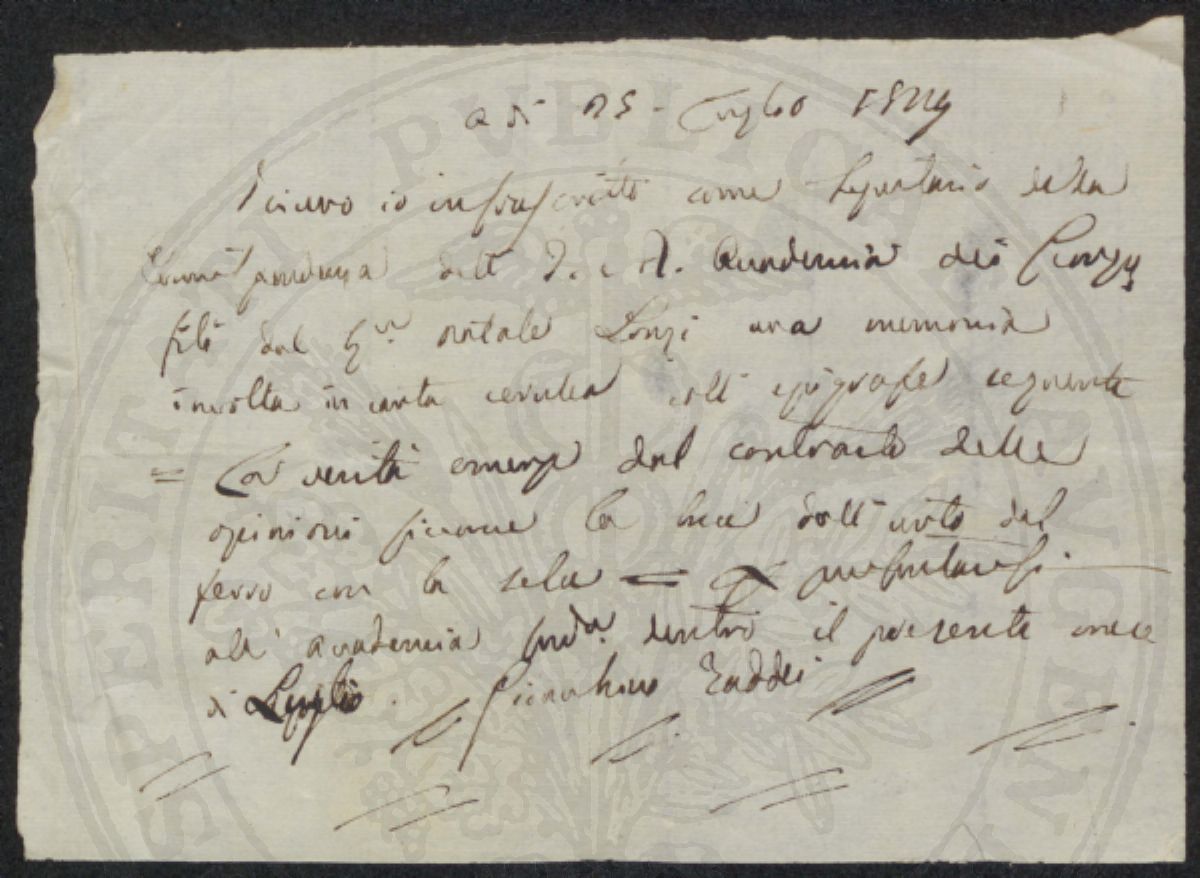 a dì 25 - Luglio 1824
Ricevo io infrascritto come Segretario della
Corrispondenza dell' I. e R. Accademia dei Georgo
fili dal Sig.r Natale Lonzi una memoria
involta in carta cerulea coll' epigrafe seguente
= La verità emerge dal contrasto delle
opinioni siccome la luce dall' urto del
ferro con la selce = presentarsi
all' Accademia sud.a dentro il presente mese
di Luglio. Gioacchino Taddei
PROSPERITATI PVBLICAE AVGEN